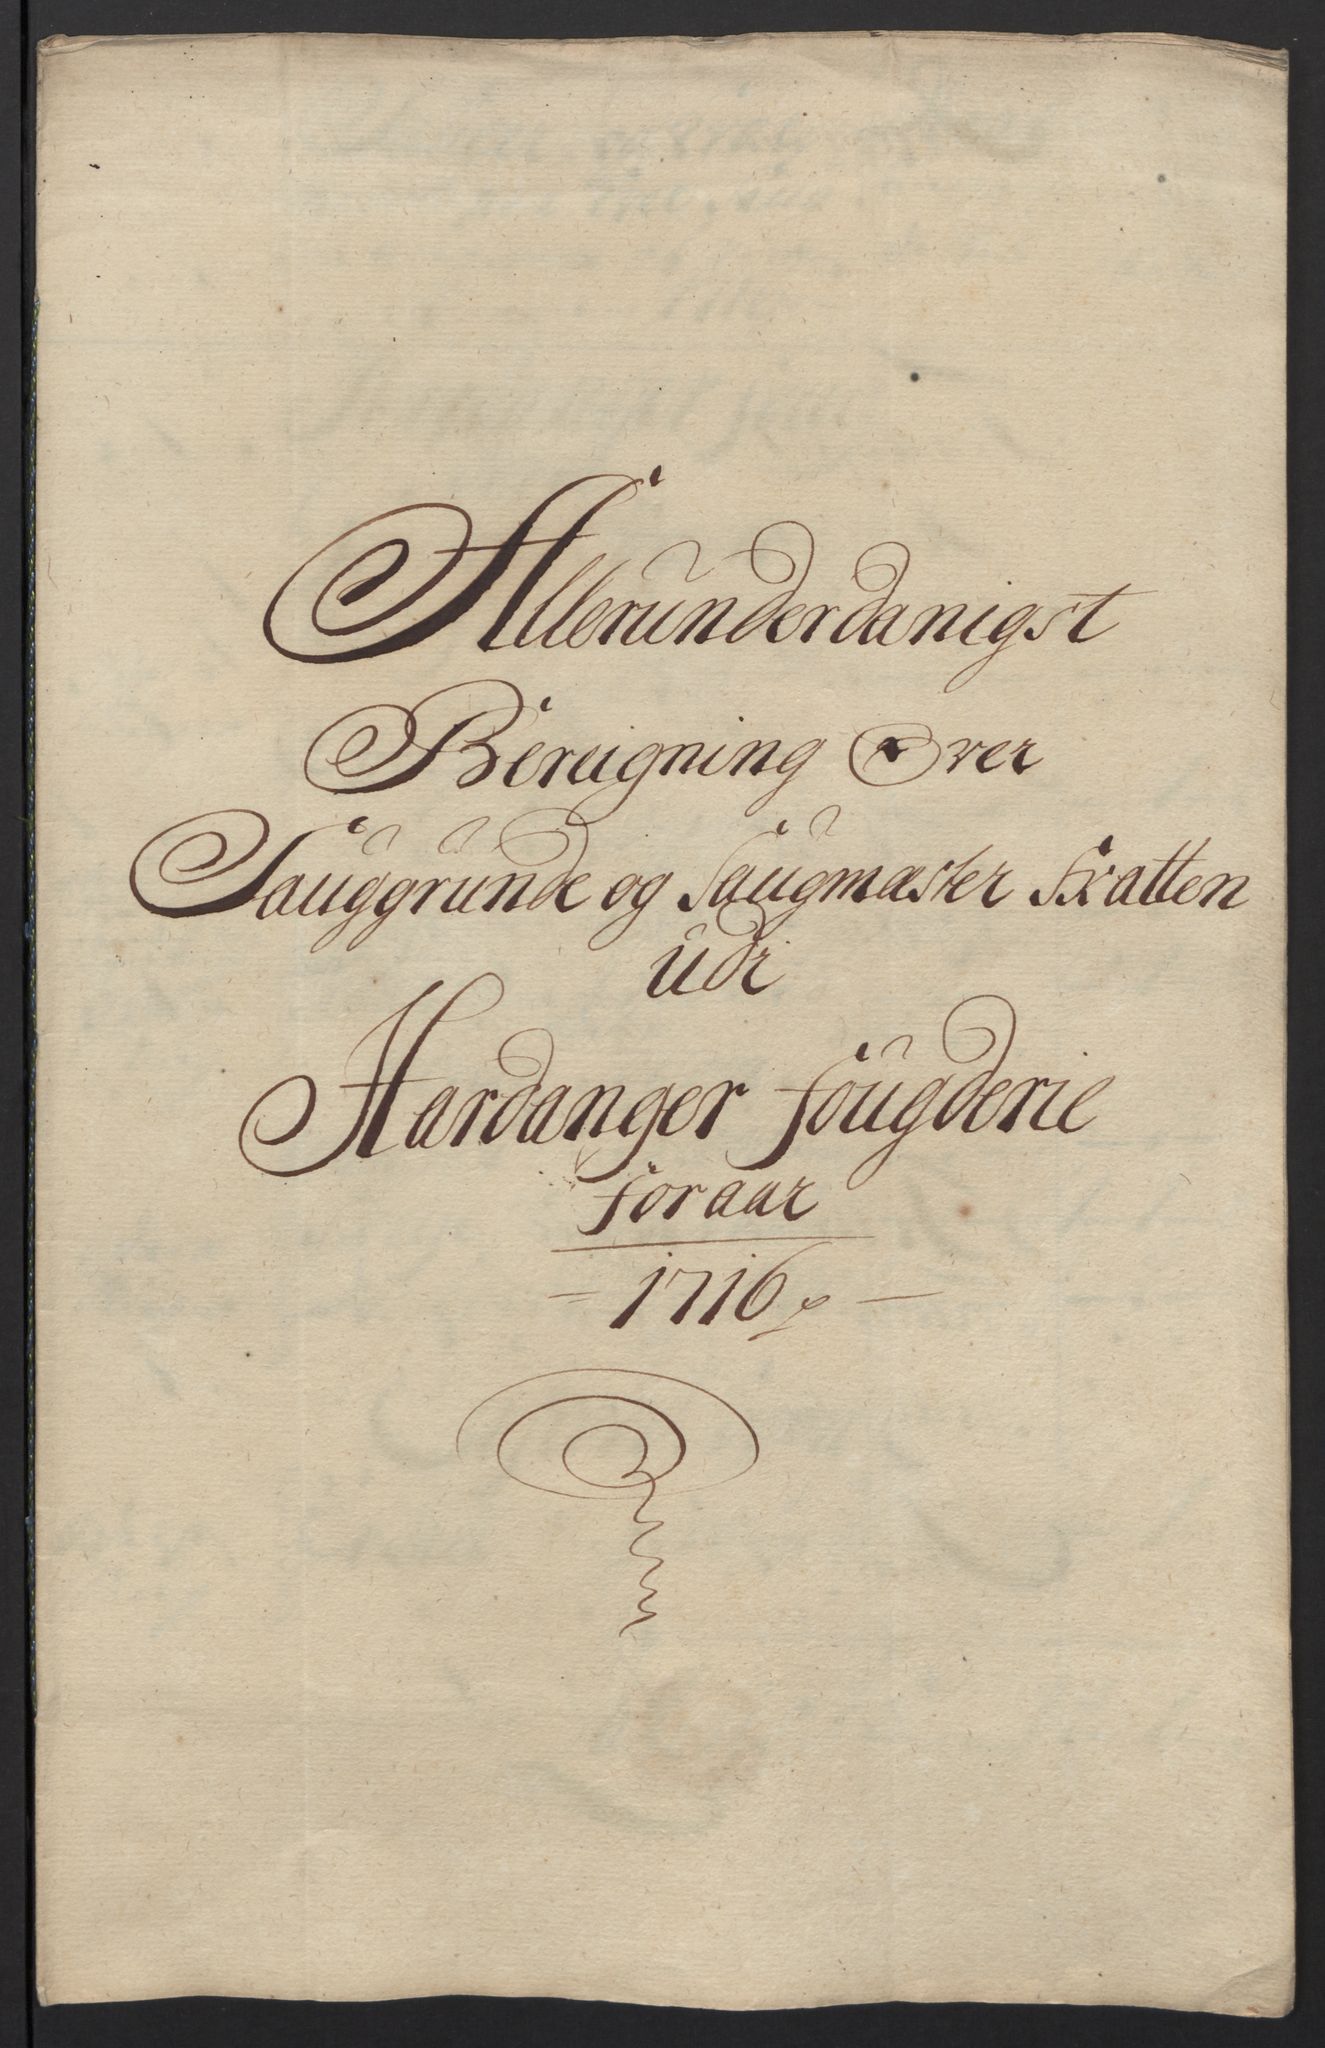 Allerunderdanigst
Bereigning Over
Sauggrunde og Saugmæster Skatten
Udi
Hardanger fougderie
for aar
1716